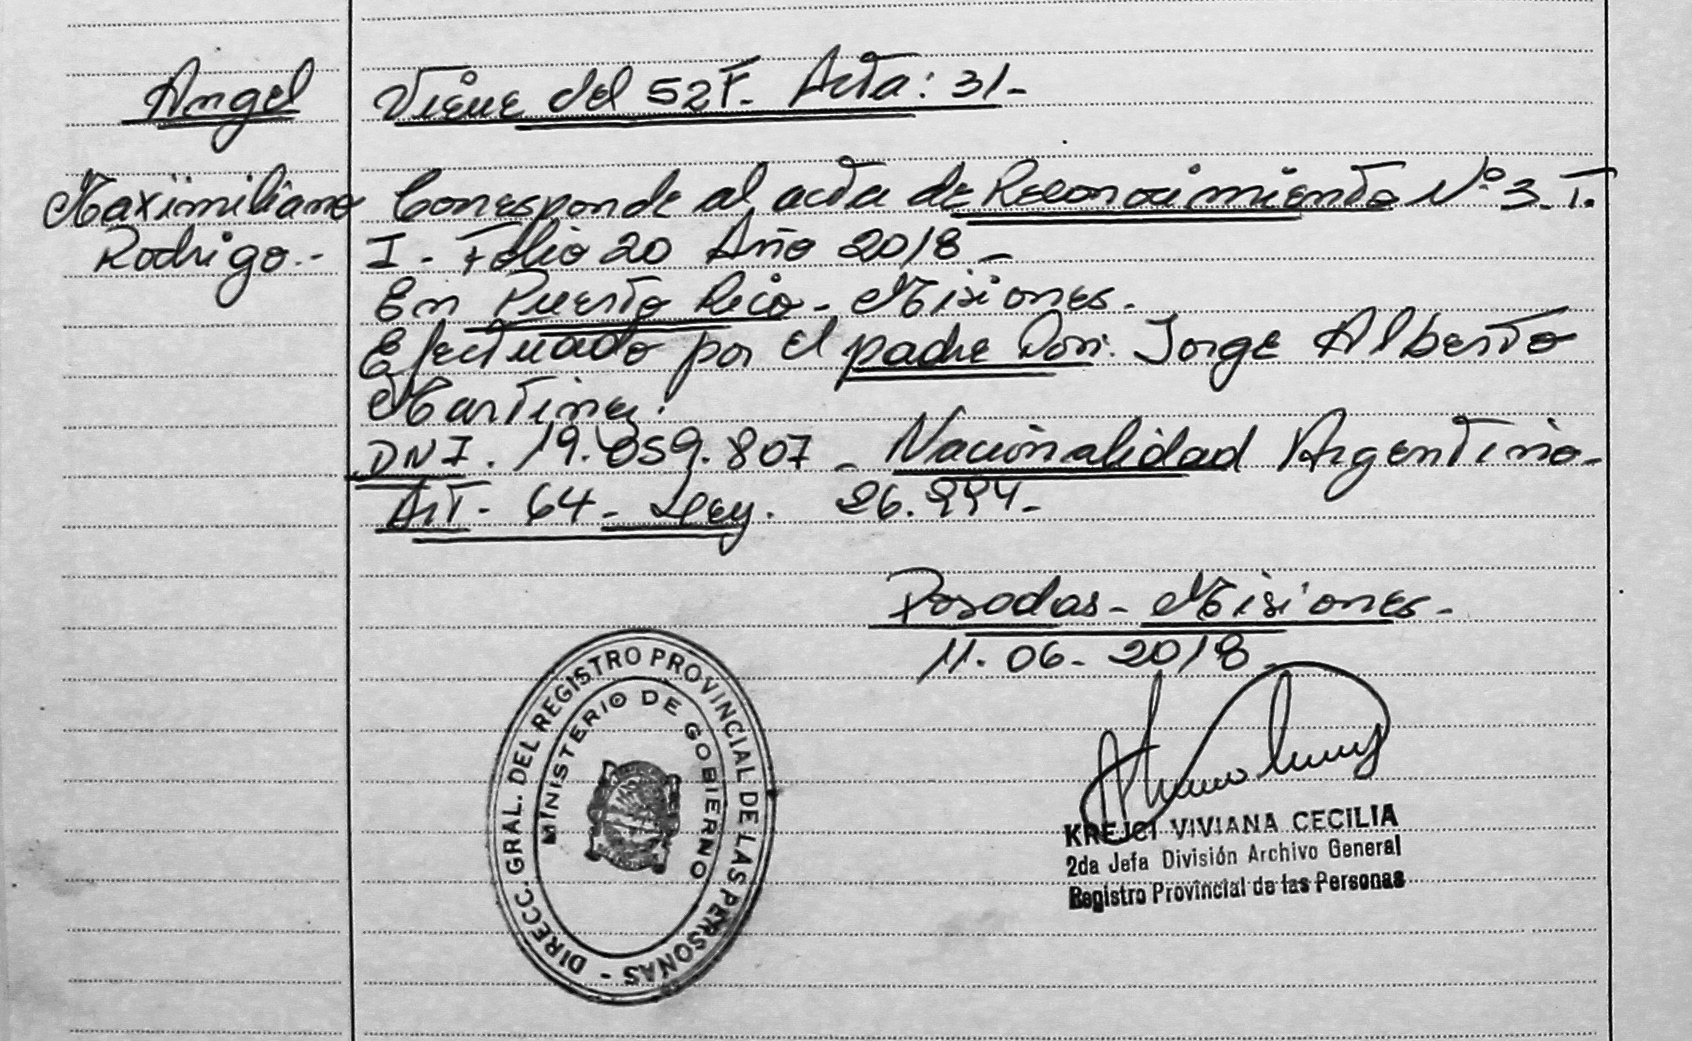 Angel
Maxiimiliano
Rodrigo.-
Viene del 52F. Acta: 31-
Corresponde al acta de Reconocimiento Nº 3. T.
I - Folio 20 Año 2018 -
En Puerto Rico - Misiones.
Efectuado por el padre Don. Jorge Alberto
Martinez.
DNI. 19.059.807 - Nacionalidad Argentino-
Art. 64 - Ley. 26.994-
Posadas - Misiones -
11-06-2018-
DIRECC. GRAL. DEL REGISTRO PROVINCIAL DE LAS PERSONAS -
MINISTERIO DE GOBIERNO
KREJCI VIVIANA CECILIA
2da Jefa División Archivo General
Registro Provincial de las Personas